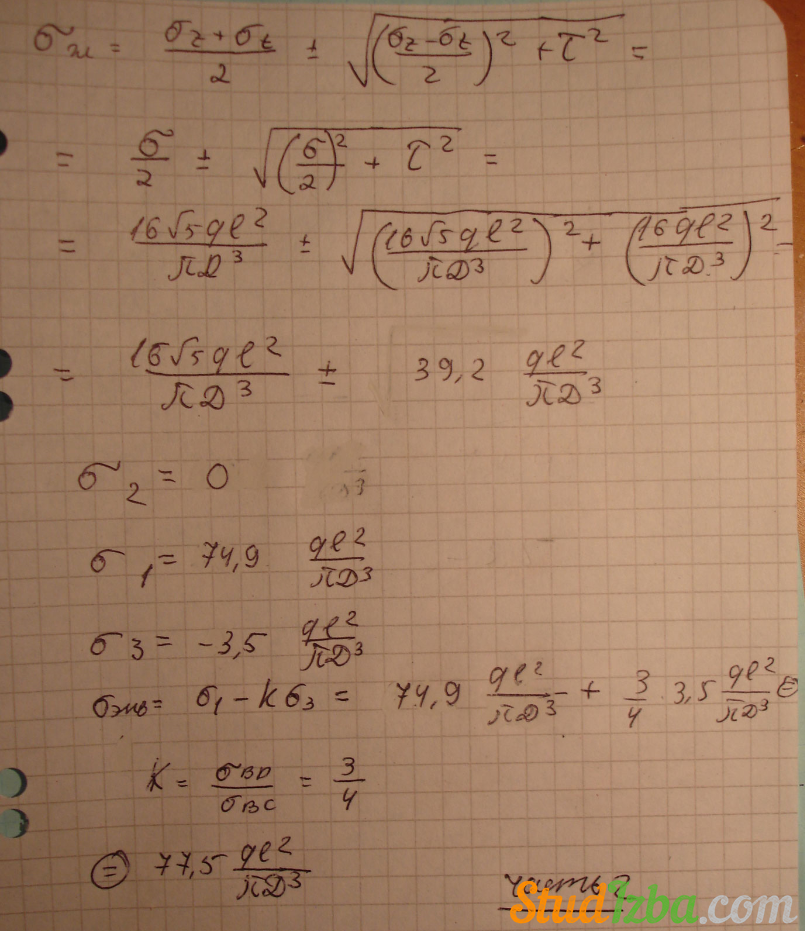 σ_гл = (σz + σt)/2 ± √(((σz − σt)/2)² + τ²) =
= σ/2 ± √((σ/2)² + τ²) =
= 16√5 qℓ²/πD³ ± √((16√5 qℓ²/πD³)² + (16 qℓ²/πD³)²) =
= 16√5 qℓ²/πD³ ± 39,2 qℓ²/πD³
σ₂ = 0
σ₁ = 74,9 qℓ²/πD³
σ₃ = −3,5 qℓ²/πD³
σэкв = σ₁ − kσ₃ = 74,9 qℓ²/πD³ + 3/4 · 3,5 qℓ²/πD³ ⊜
K = σвр/σвс = 3/4
⊜ 77,5 qℓ²/πD³
часть 2
StudIzba.com